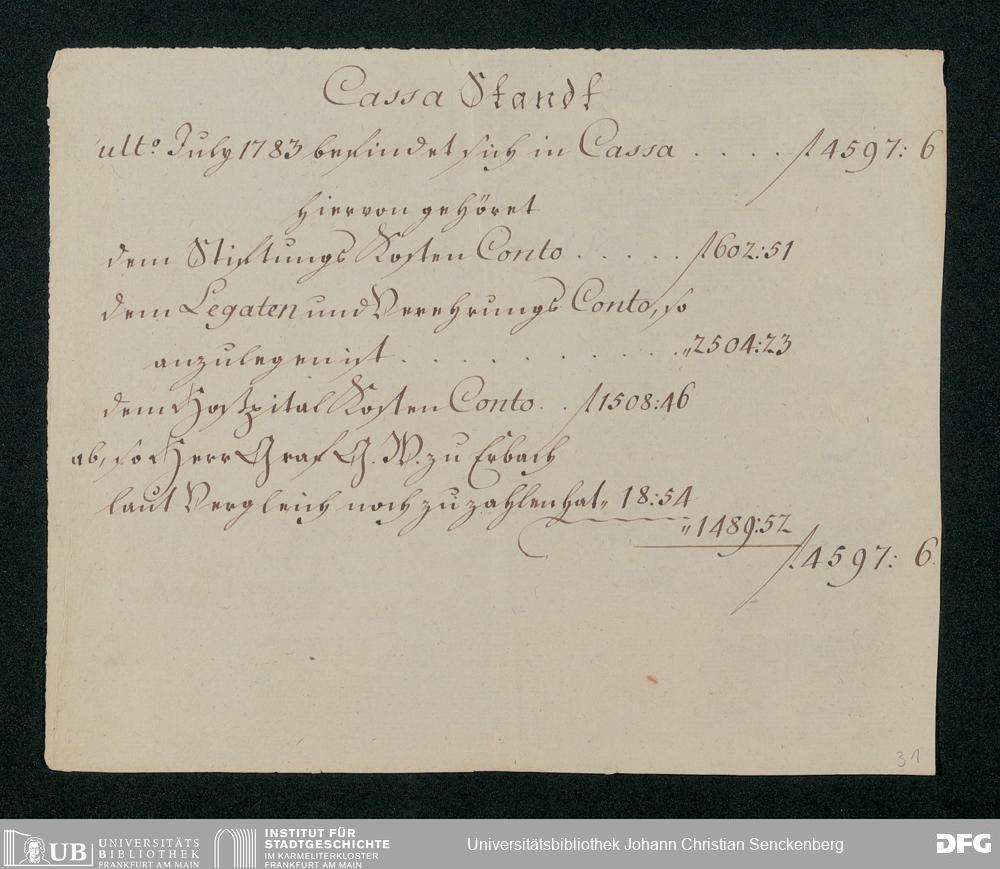 Cassa Standt
ult.o July 1783 befindet sich in Cassa . . . . f 4597: 6
hiervon gehöret
dem Stiftungs Kosten Conto . . . . . f 602:51
dem Legaten und Verehrungs Conto, so
anzulegen ist . . . . . . . . . . „ 2504:23
dem Hospital Kosten Conto . . f 1508:46
ab, so Herr Graf G. W. zu Erbach
laut Vergleich noch zu zahlen hat „ 18:54
„ 1489:52
f 4597: 6.
31
UB UNIVERSITÄTS
BIBLIOTHEK
FRANKFURT AM MAIN
INSTITUT FÜR
STADTGESCHICHTE
IM KARMELITERKLOSTER
FRANKFURT AM MAIN
Universitätsbibliothek Johann Christian Senckenberg
DFG